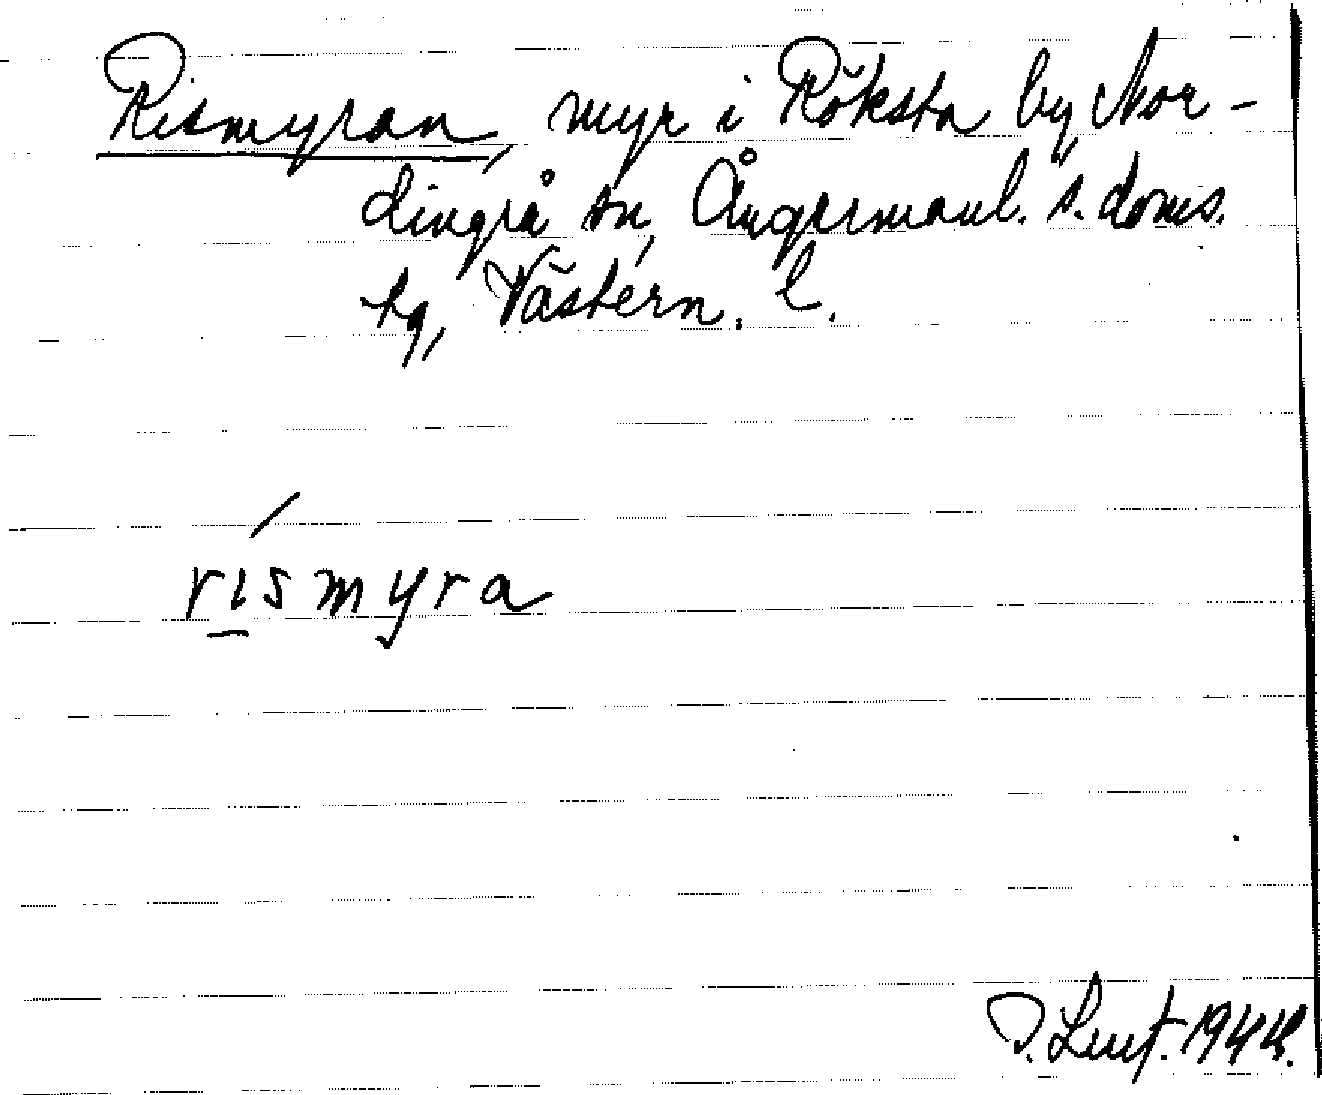 Rismyran, myr i Röksta by, Nor-
dingrå sn, Ångermanl. s. doms.
hg, Västern. l.
rismyra
1944.